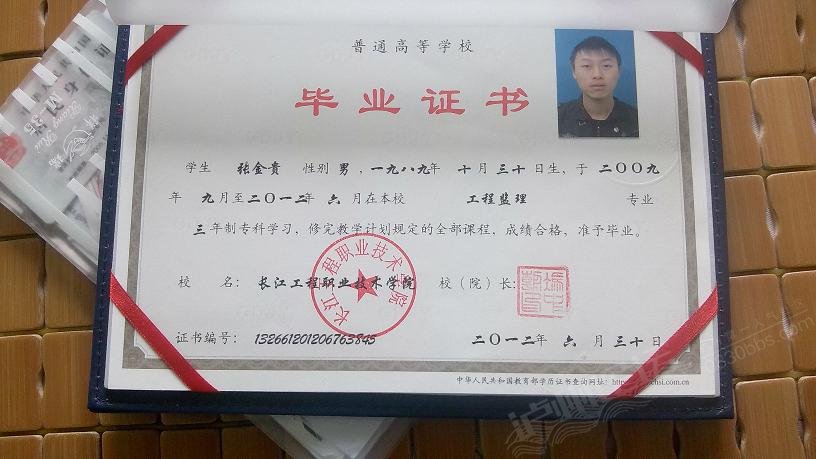 普通高等学校
毕业证书
学生 张金贵 性别 男,一九八九年 十月三十日生,于二〇〇九
年 九月至二〇一二年 六 月在本校 工程监理 专业
三年制专科学习,修完教学计划规定的全部课程,成绩合格,准予毕业。
校 名: 长江工程职业技术学院 校(院)长:
长江工程职业技术学院
证书编号: 132661201206763845 二〇一二年 六 月 三十日
中华人民共和国教育部学历证书查询网址: